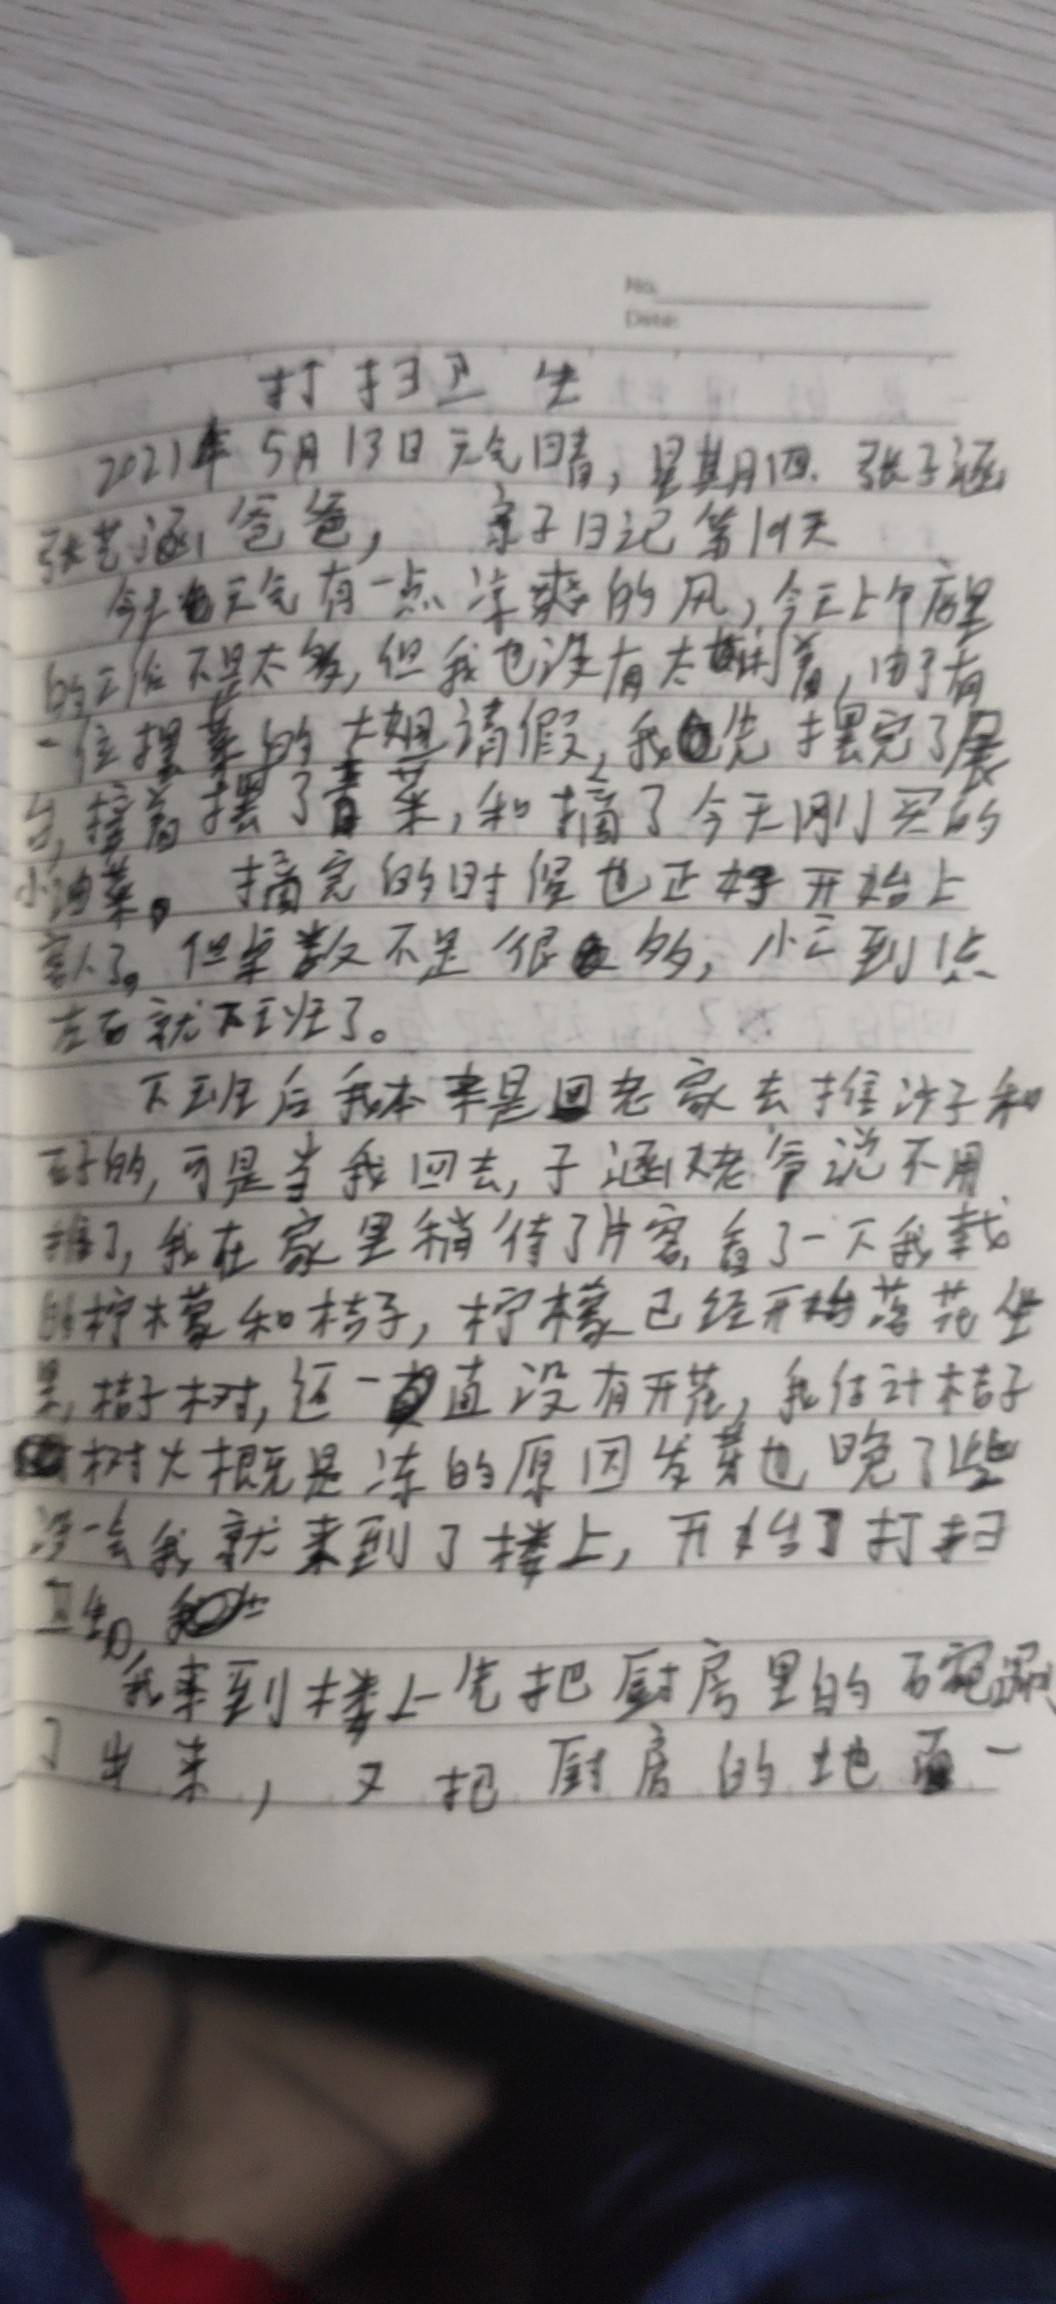 No.
Date:
打扫卫生
2021年5月13日天气晴,星期四. 张子涵
张艺涵爸爸, 亲子日记第19天
今天天气有一点凉爽的风,今天上午店里
的工作不是太多,但我也没有太闲着,由于有
一位摆菜的大姐请假,我先摆完了展
台,接着摆了青菜,和摘了今天刚买的
小油菜。摘完的时候也正好开始上
客人了。但桌数不是很多,小三到点
左右就下班了。
下班后我本来是回老家去推沙子和
石子的,可是当我回去,子涵老爷说不用
推了,我在家里稍待了片客,看了一下我栽
的柠檬和桔子,柠檬已经开始落花坐
果,桔子树,还一直没有开花,我估计桔子
树大概是冻的原因发芽也晚了些
没一会我就来到了楼上,开始了打扫
卫生,
我来到楼上先把厨房里的碗涮
了出来,又把厨房的地面一